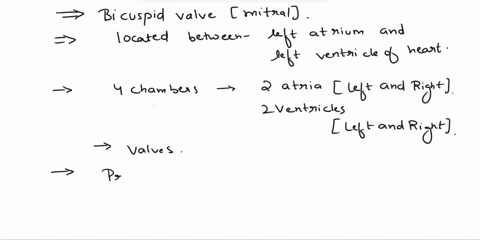 ⇒ Bicuspid valve [mitral].
⇒ located between- left atrium and
left ventricle of heart.
→ 4 chambers → 2 atria [Left and Right].
2 Ventricles
[Left and Right].
→ Valves.
→ Pr